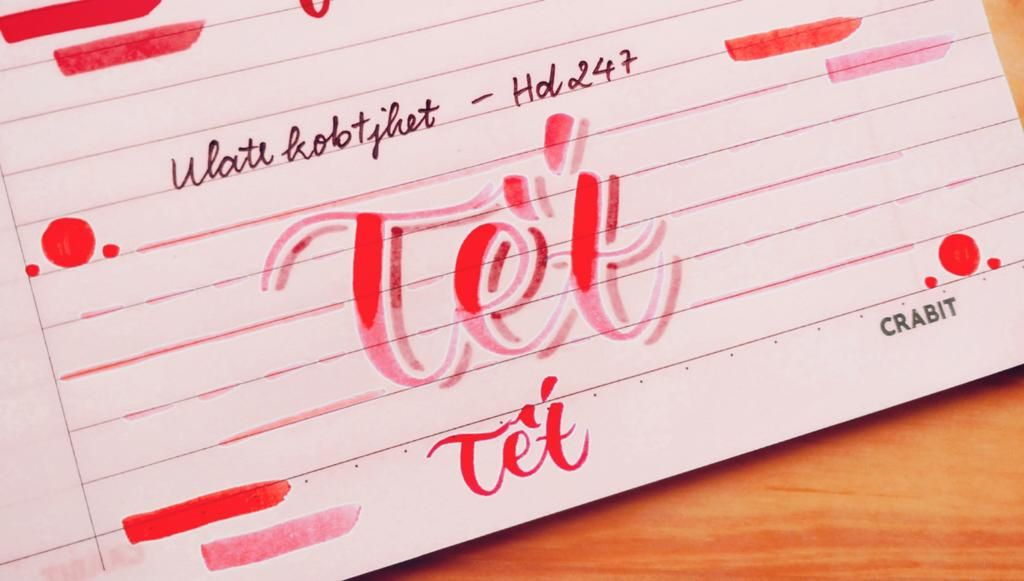 Ulatt kobtjhet - Hd 247
Tết
CRABIT
Tết